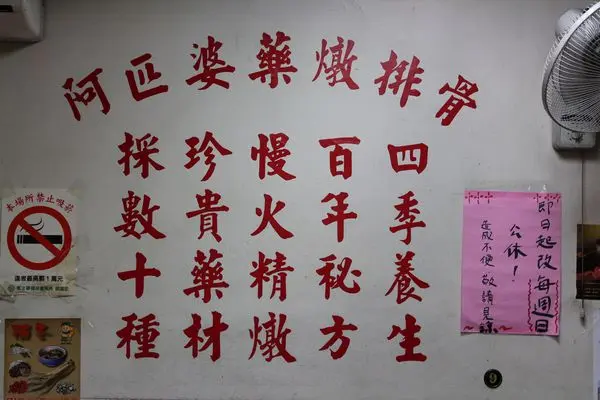 阿匹婆藥燉排骨
採數十種
珍貴藥材
慢火精燉
百年秘方
四季養生
本場所禁止吸菸
違者最高罰1萬元
即日起改每週日
公休!
造成不便 敬請見諒
9